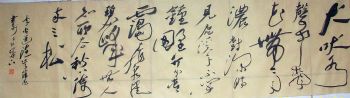 犬吠水
声中桃
花带雨
浓树深时
见鹿溪午不闻
钟野竹分青
霭飞泉挂
碧峰无人
知所去愁倚
两三松